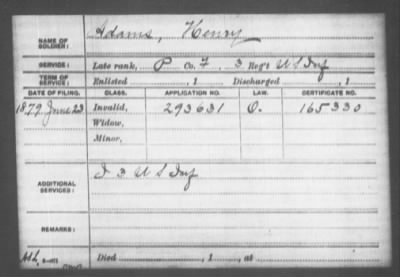 NAME OF SOLDIER: Adams, Henry
SERVICE: Late rank, P Co. F, 3 Reg't U S Inf
TERM OF SERVICE: Enlisted , 1 Discharged , 1
DATE OF FILING. CLASS. APPLICATION NO. LAW. CERTIFICATE NO.
1879 June 23 Invalid, 293631 O. 165330
Widow,
Minor,
ADDITIONAL SERVICES: I 3 U S Inf
REMARKS:
Died , 1 , at